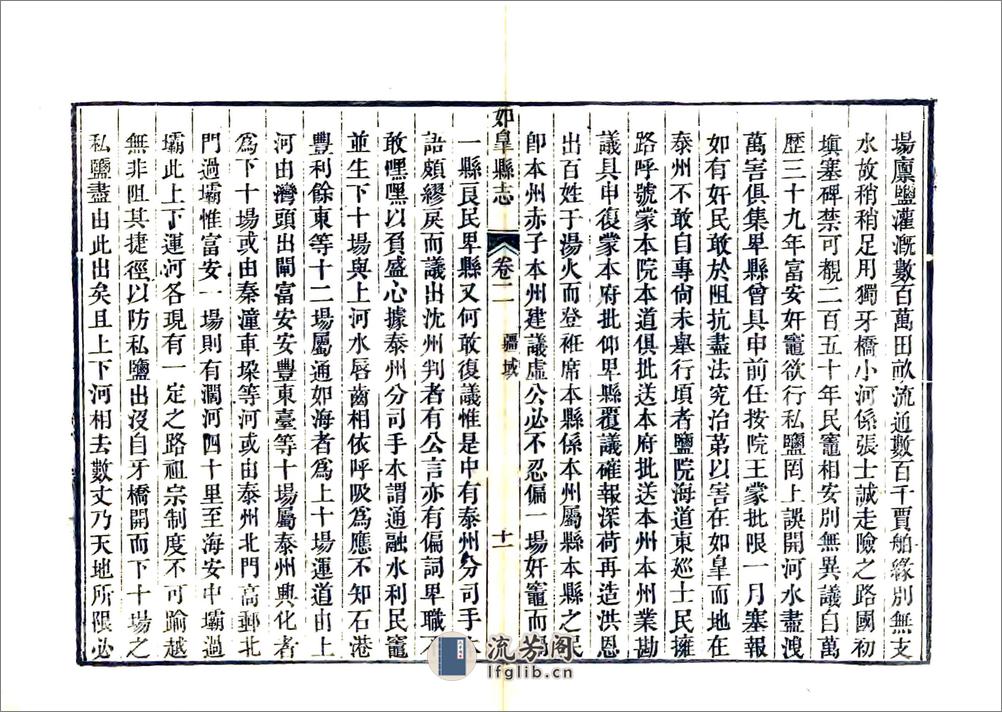 場廪鹽灌溉數百萬田畝流通數百千賈舶緣別無支
水故稍稍足用獨牙橋小河係張士誠走險之路國初
塡塞碑禁可觀二百五十年民竈相安別無異議自萬
歷三十九年富安奸竈欲行私鹽罔上誤開河水盡洩
萬害俱集卑縣曾具申前任按院王蒙批限一月塞報
如有奸民敢於阻抗盡法究治第以害在如臯而地在
泰州不敢自專尙未舉行頃者鹽院海道東巡士民擁
路呼號蒙本院本道俱批送本府批送本州本州業勘
議具申復蒙本府批仰卑縣覆議確報深荷再造洪恩
出百姓于湯火而登袵席本縣係本州屬縣本縣之民
卽本州赤子本州建議虛公必不忍偏一場奸竈而
如臯縣志
卷二
疆域
十一
一縣良民卑縣又何敢復議惟是中有泰州分司手本
語頗繆戾而議出沈州判者有公言亦有偏詞卑職不
敢嘿嘿以負盛心據泰州分司手本謂通融水利民竈
並生下十場與上河水唇齒相依呼吸爲應不知石港
豐利餘東等十二場屬通如海者爲上十場運道由上
河由灣頭出閘富安安豐東臺等十場屬泰州興化者
爲下十場或由秦潼車垜等河或由泰州北門高郵北
門過壩惟富安一場則有澗河四十里至海安中壩過
壩此上下運河各現有一定之路祖宗制度不可踰越
無非阻其捷徑以防私鹽出沒自牙橋開而下十場之
私鹽盡由此出矣且上下河相去數丈乃天地所限必
流芳阁
lfglib.cn